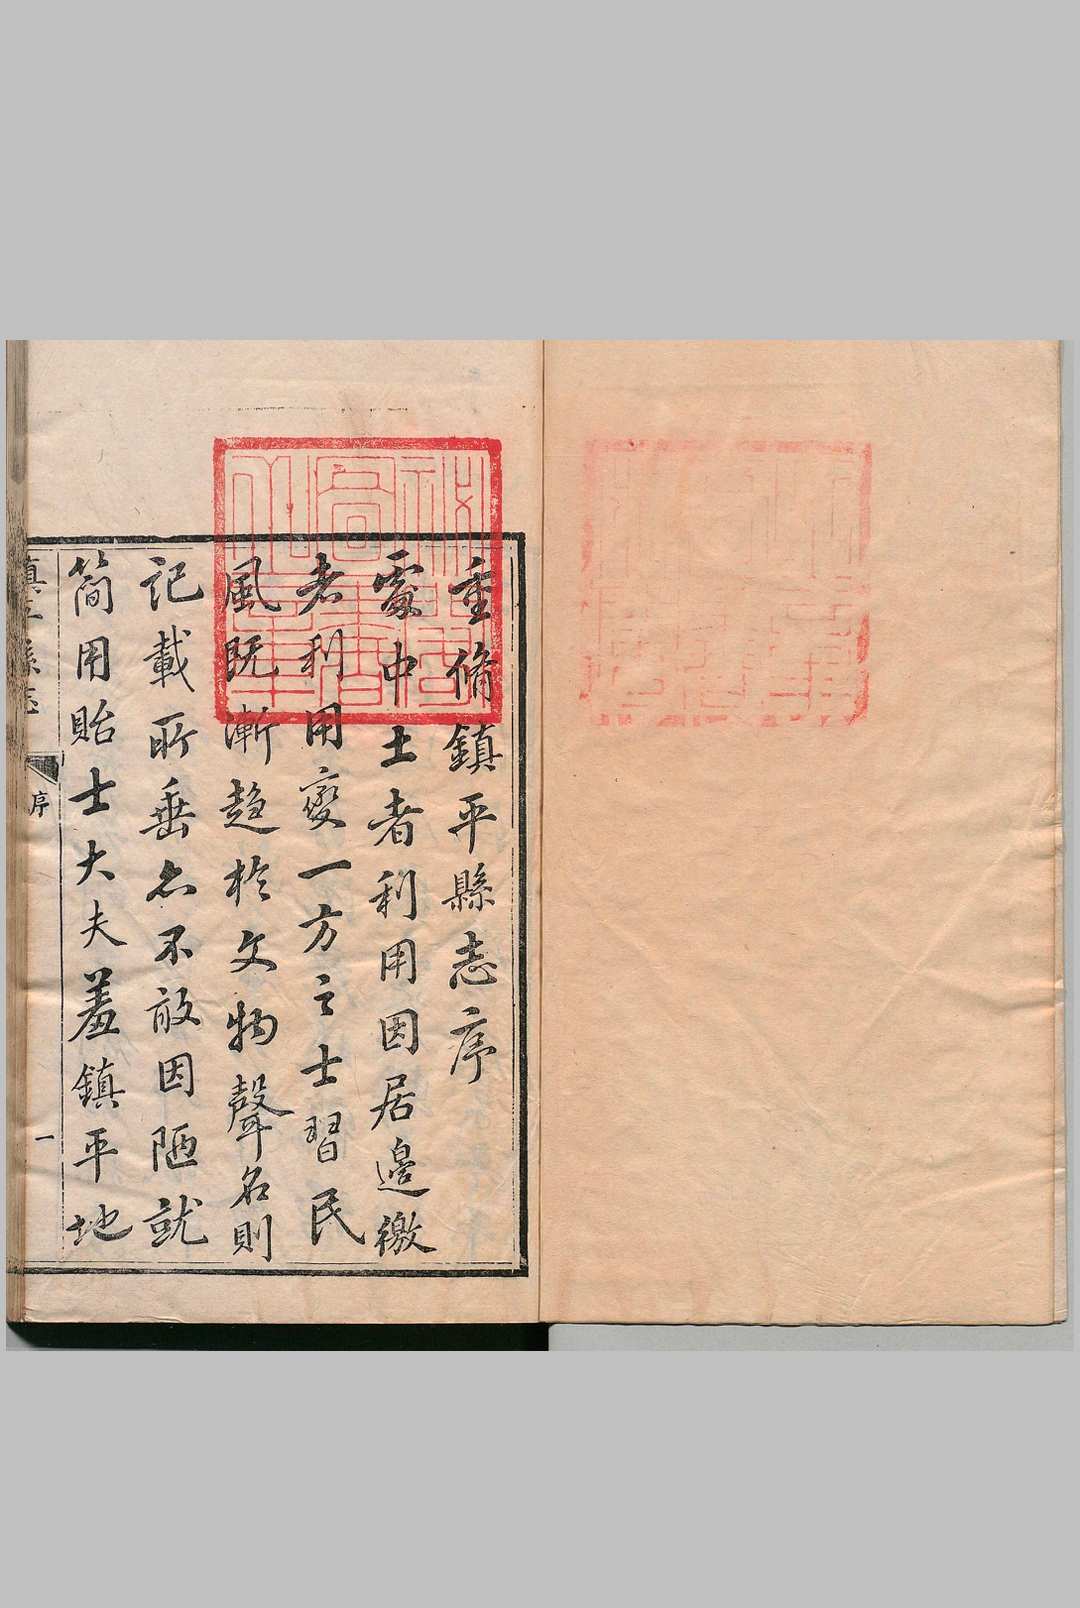 重脩鎮平縣志序
處中土者利用因居邊徼
者利用變一方之士習民
風既漸趋於文物聲名則
記載所垂亦不敢因陋就
簡用貽士大夫羞鎮平地
鎮平縣志
序
一